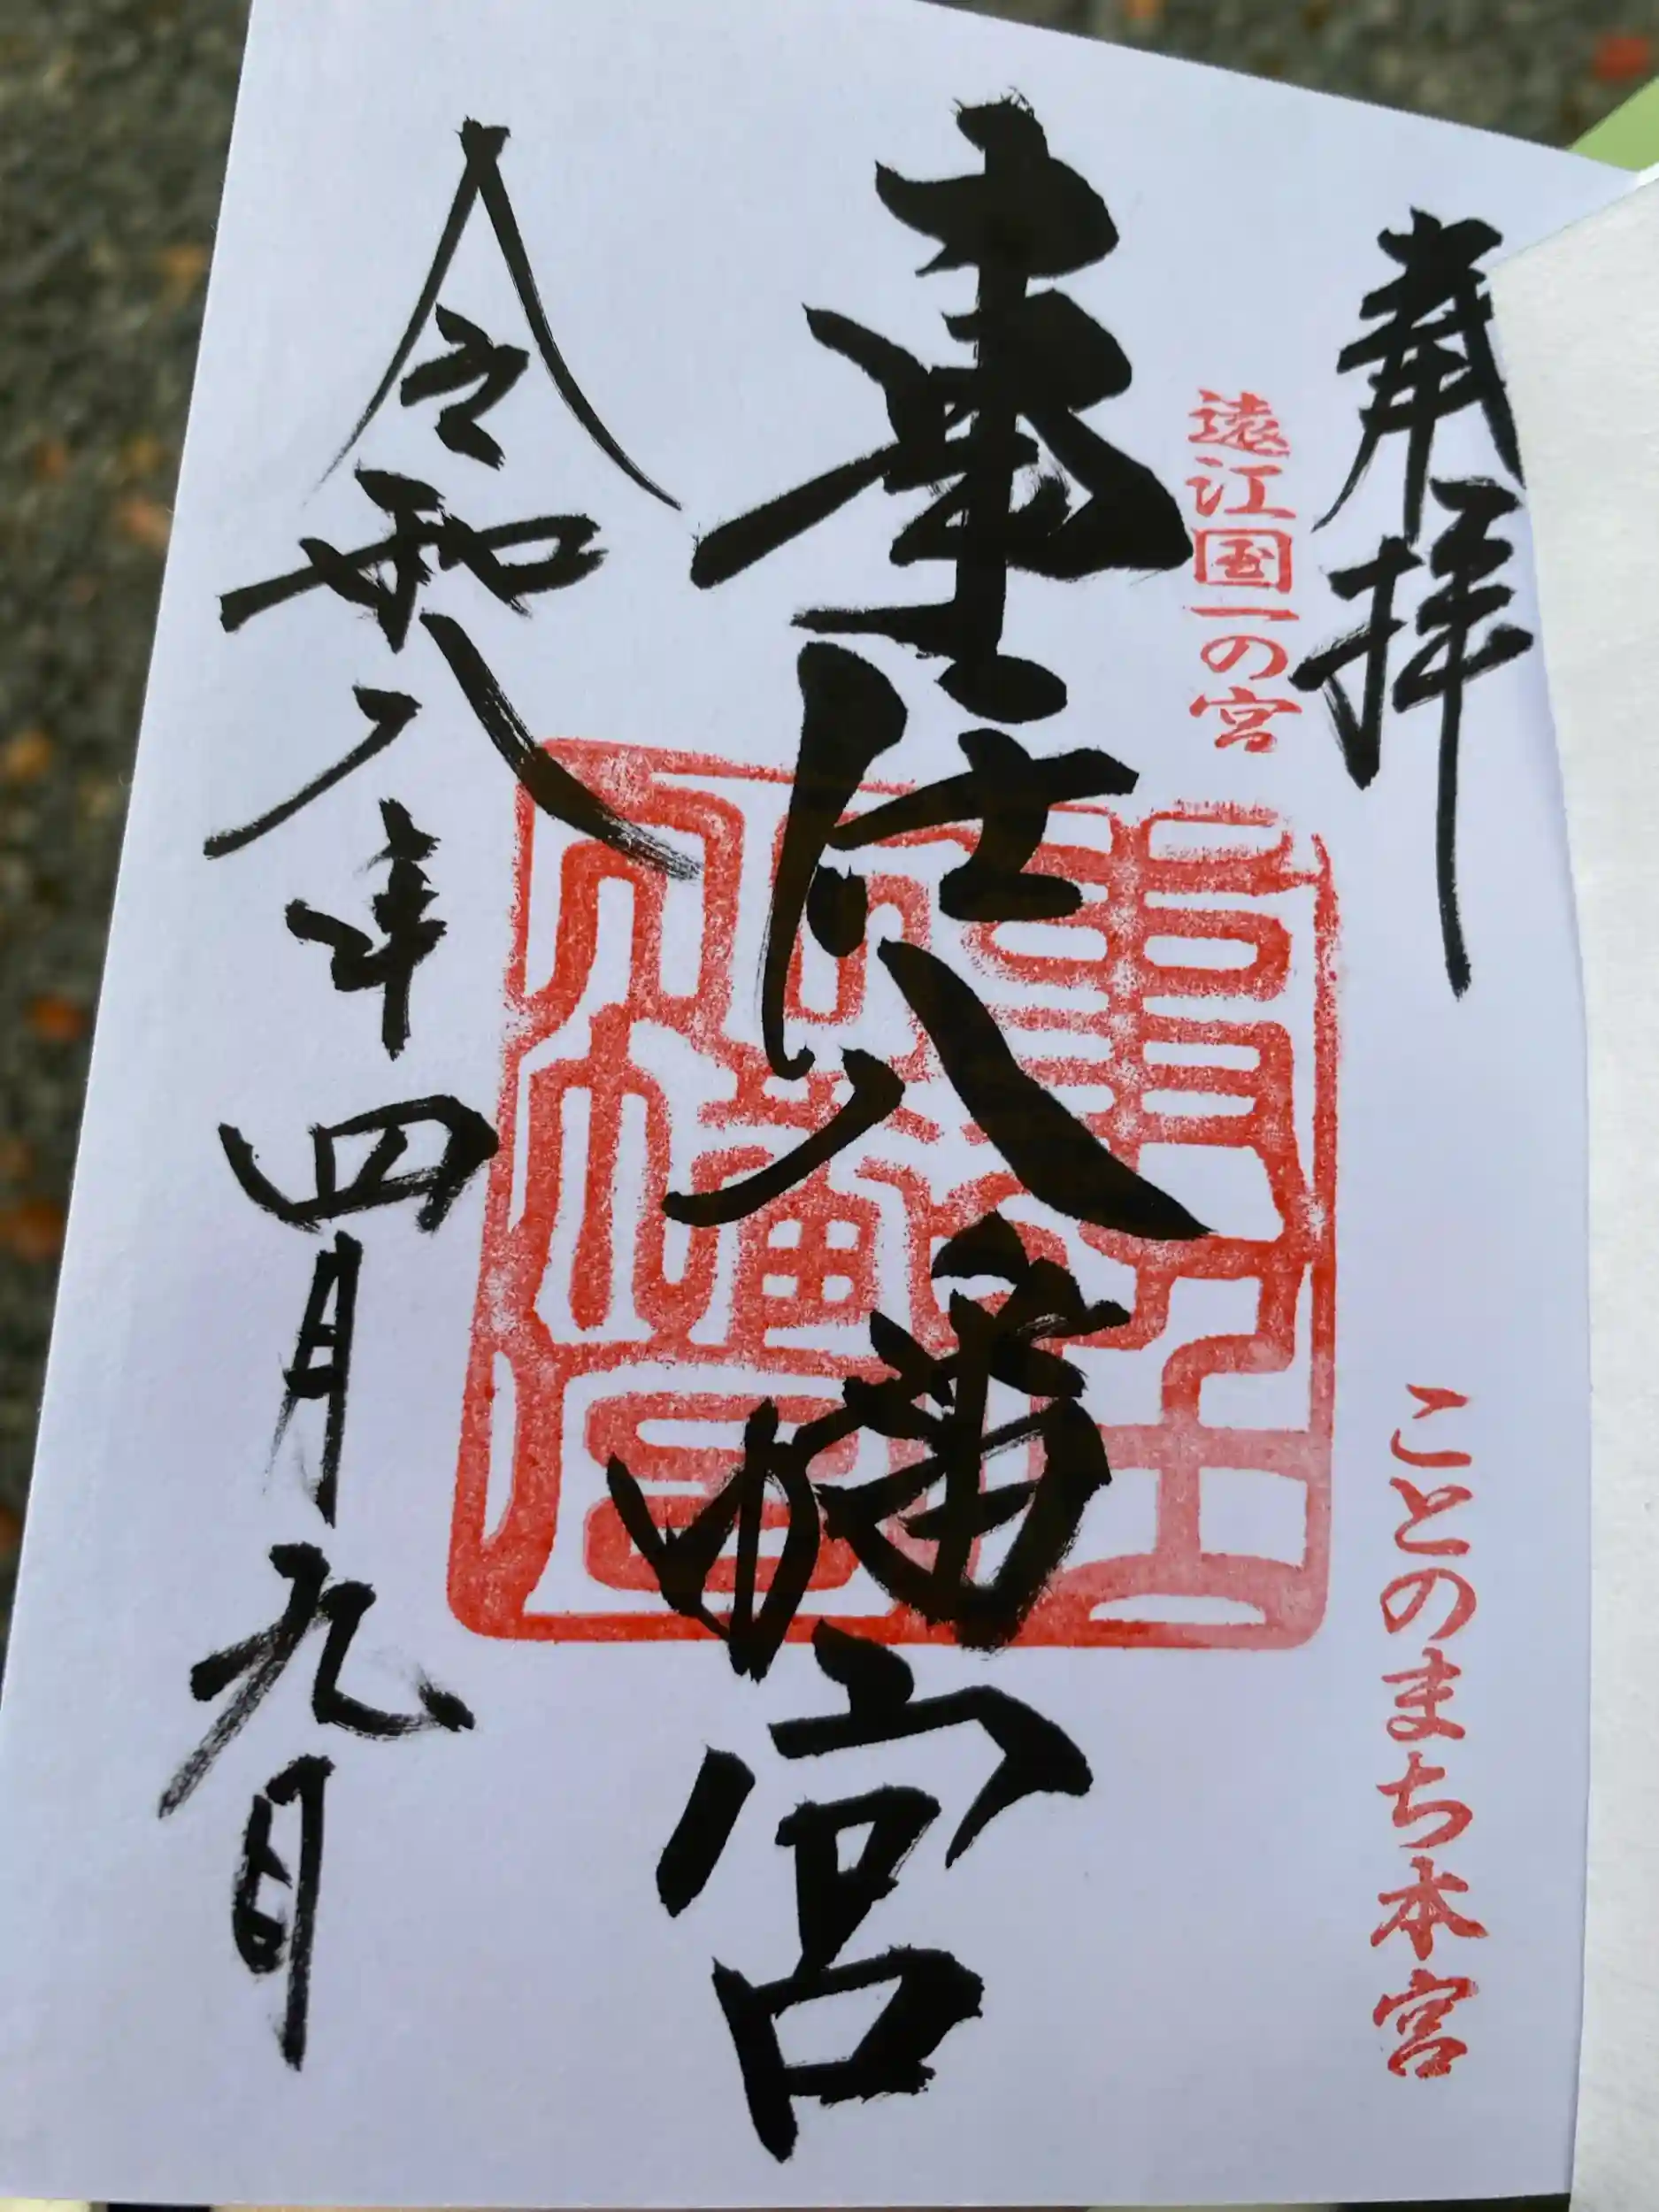 奉拝
ことのまち本宮
遠江国一の宮
事任八幡宮
事任
八幡宮
令和八年四月九日